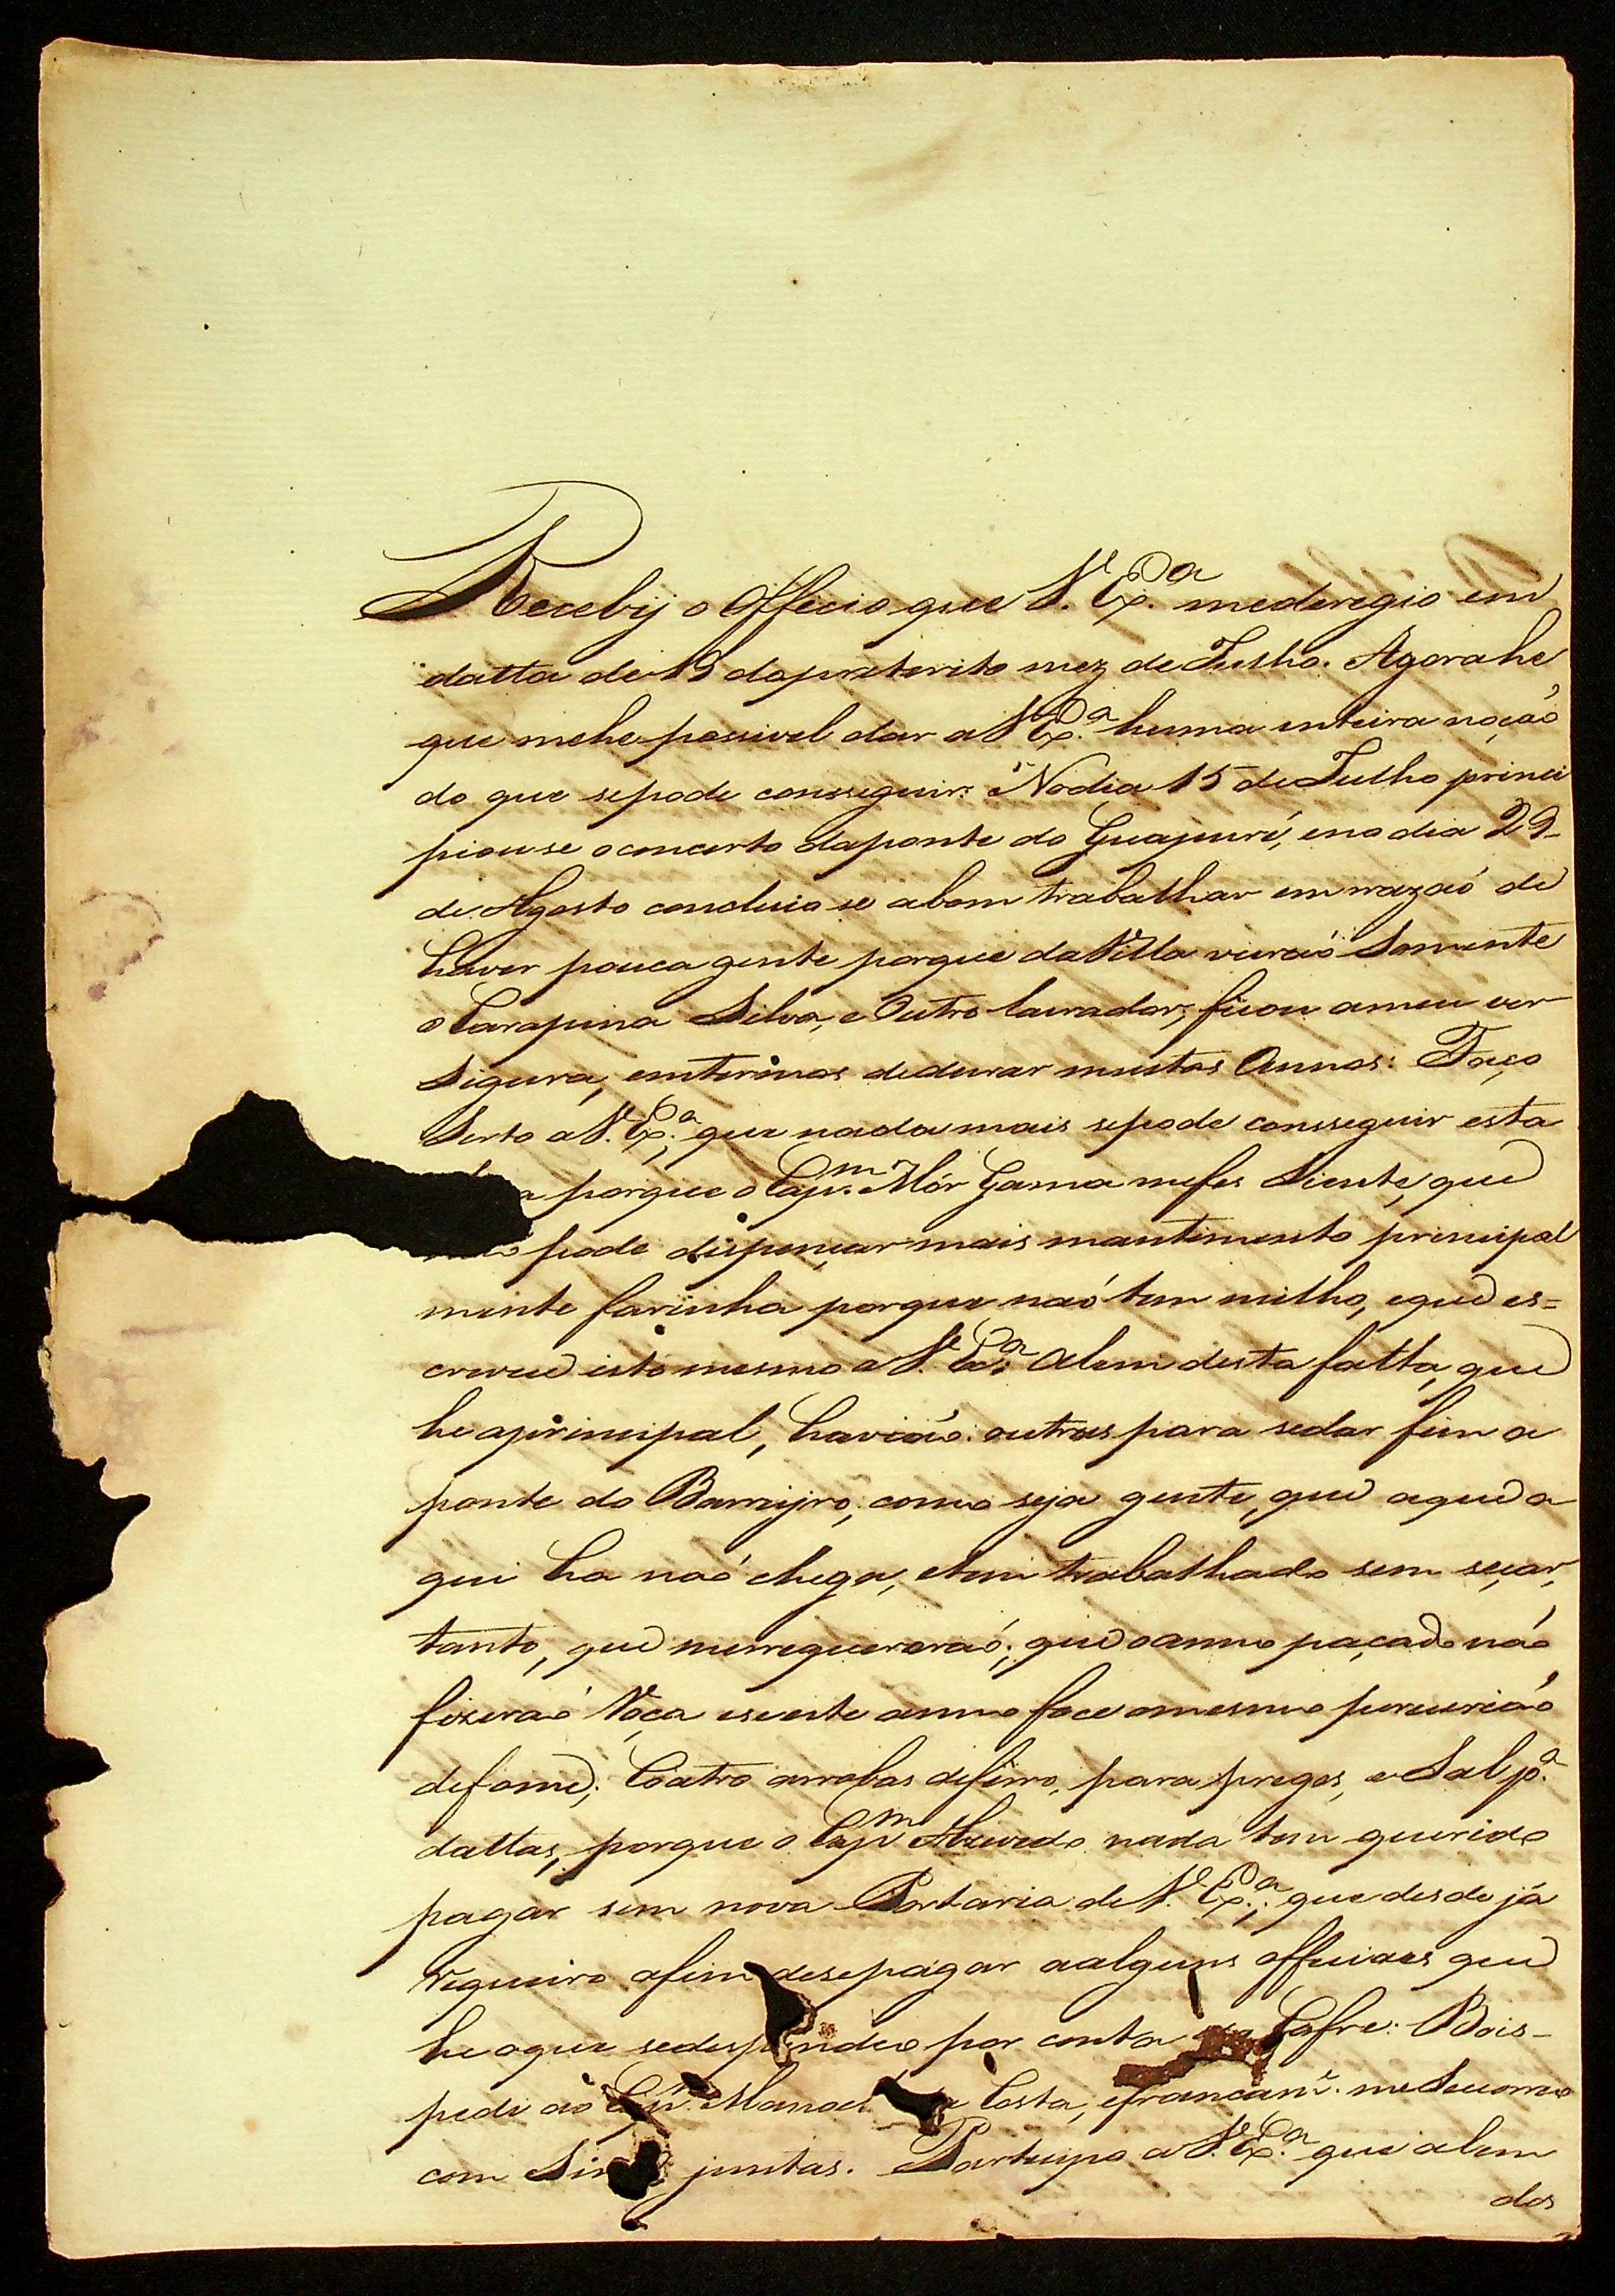 Recebij o Officio que V. Ex.ª mederegio em
datta de 13 do preterito mez de Julho. Agora he
que mehe possivel dar a V Ex.ª huma inteira noçaõ
do que sepode consseguir: No dia 15 de Julho princi
piouse o concerto daponte do Guapuré, e no dia 29
de Agosto concluio se abom trabalhar em razaõ de
haver pouca gente porque da Villa vieraõ Somente
o Carapina Silva, e Outro lavrador, ficou a meu ver
Sigura, emtermos dedurar muitos Annos: Faço
Serto a V. Ex.ª, que nada mais sepode consseguir esta
a porque o Cap.m Mór Gama mefes Siente, que
pode dispençar mais mantimento principal
mente farinha porque naõ tem milho, eque es=
creveu isto mesmo a V. Ex.ª: Alem desta falta, que
he aprincipal, haviaõ outras para sedar fim a
ponte do Barreyro, como seja gente, que aque a
qui ha naõ chega, etem trabalhado sem seçar,
tanto, que merrequereraõ, que o anno paçado naõ
fizeraõ Roça eseeste anno face o mesmo pereceriaõ
defome; Coatro arrobas deferro, para pregos, e Sal p.ª
dattas, porque o Cap.m Azevedo nada tem querido
pagar sem nova Portaria de V. Ex.ª, que desde já
requeiro afim desepagar aalguns officiaes que
he oque sedespendeo por conta do Cofre: Bois
pedi ao Cap.m Manoel da Costa, efrancam.e me Secorreo
com Sinco juntas. Partecipo a V. Ex.ª que alem
dos